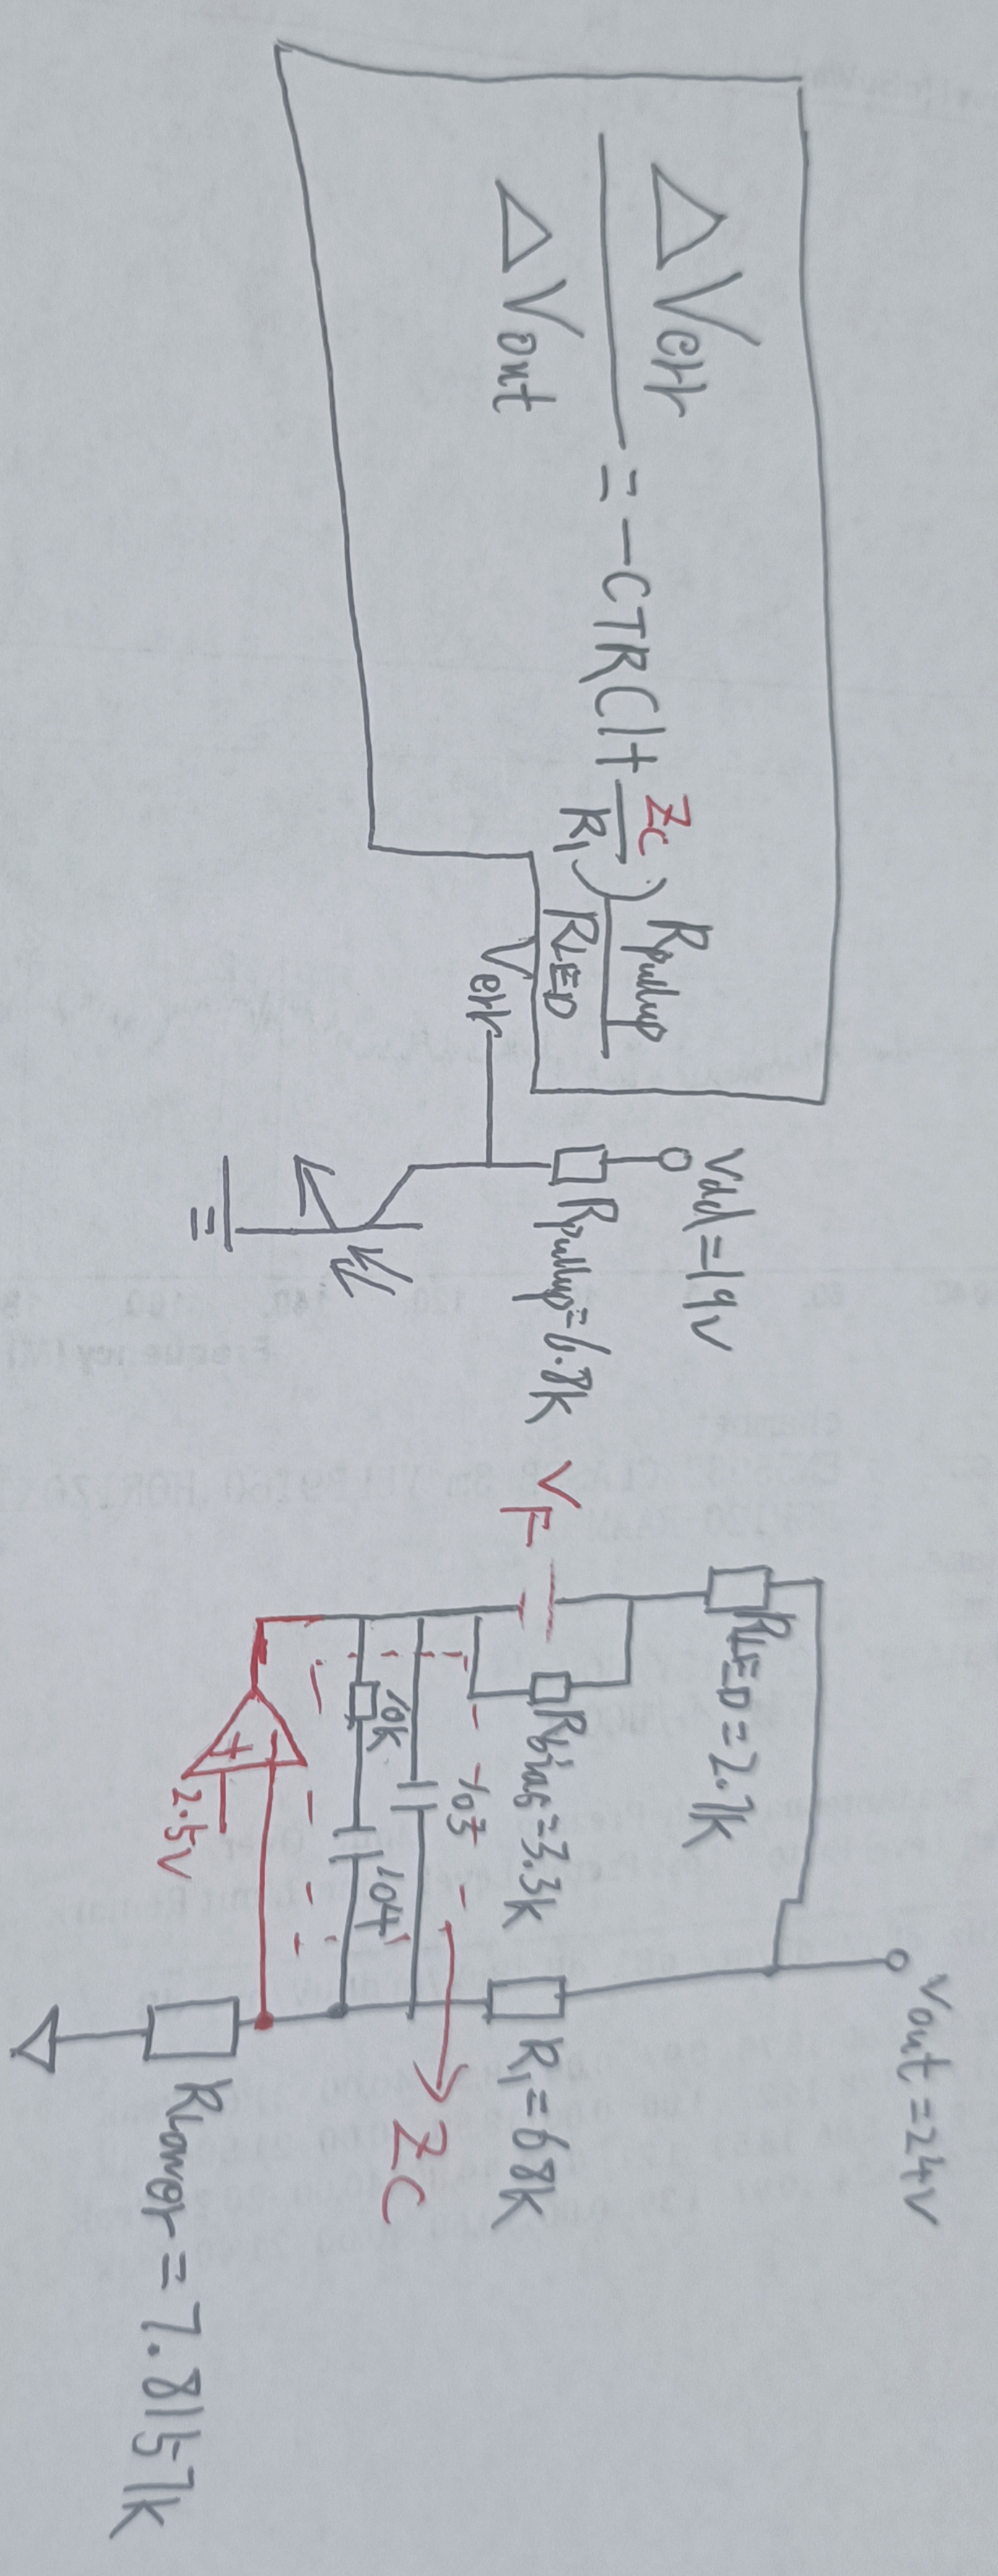 ΔVerr / ΔVout = -CTR(1+ Zc / R1) Rpullup / RLED
Vdd=19V
Rpullup=6.8K
Verr
Vout=24V
RLED=2.7K
VF
Rbias=3.3K
R1=68K
103
ZC
10K
104
-
+
2.5V
RLower=7.8157K